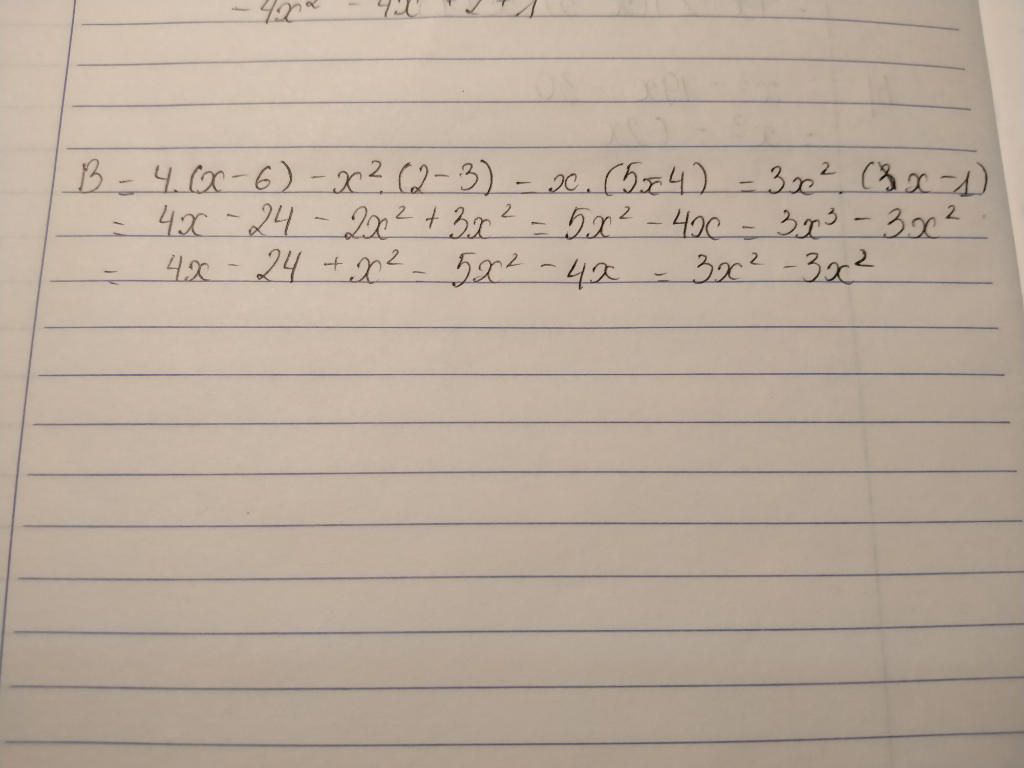 - 4x² - 4x + 2 + 1
B = 4.(x-6) - x².(2-3) - x.(5x-4) = 3x².(x-1)
= 4x - 24 - 2x² + 3x² = 5x² - 4x = 3x³ - 3x²
= 4x - 24 + x² - 5x² - 4x = 3x² - 3x²